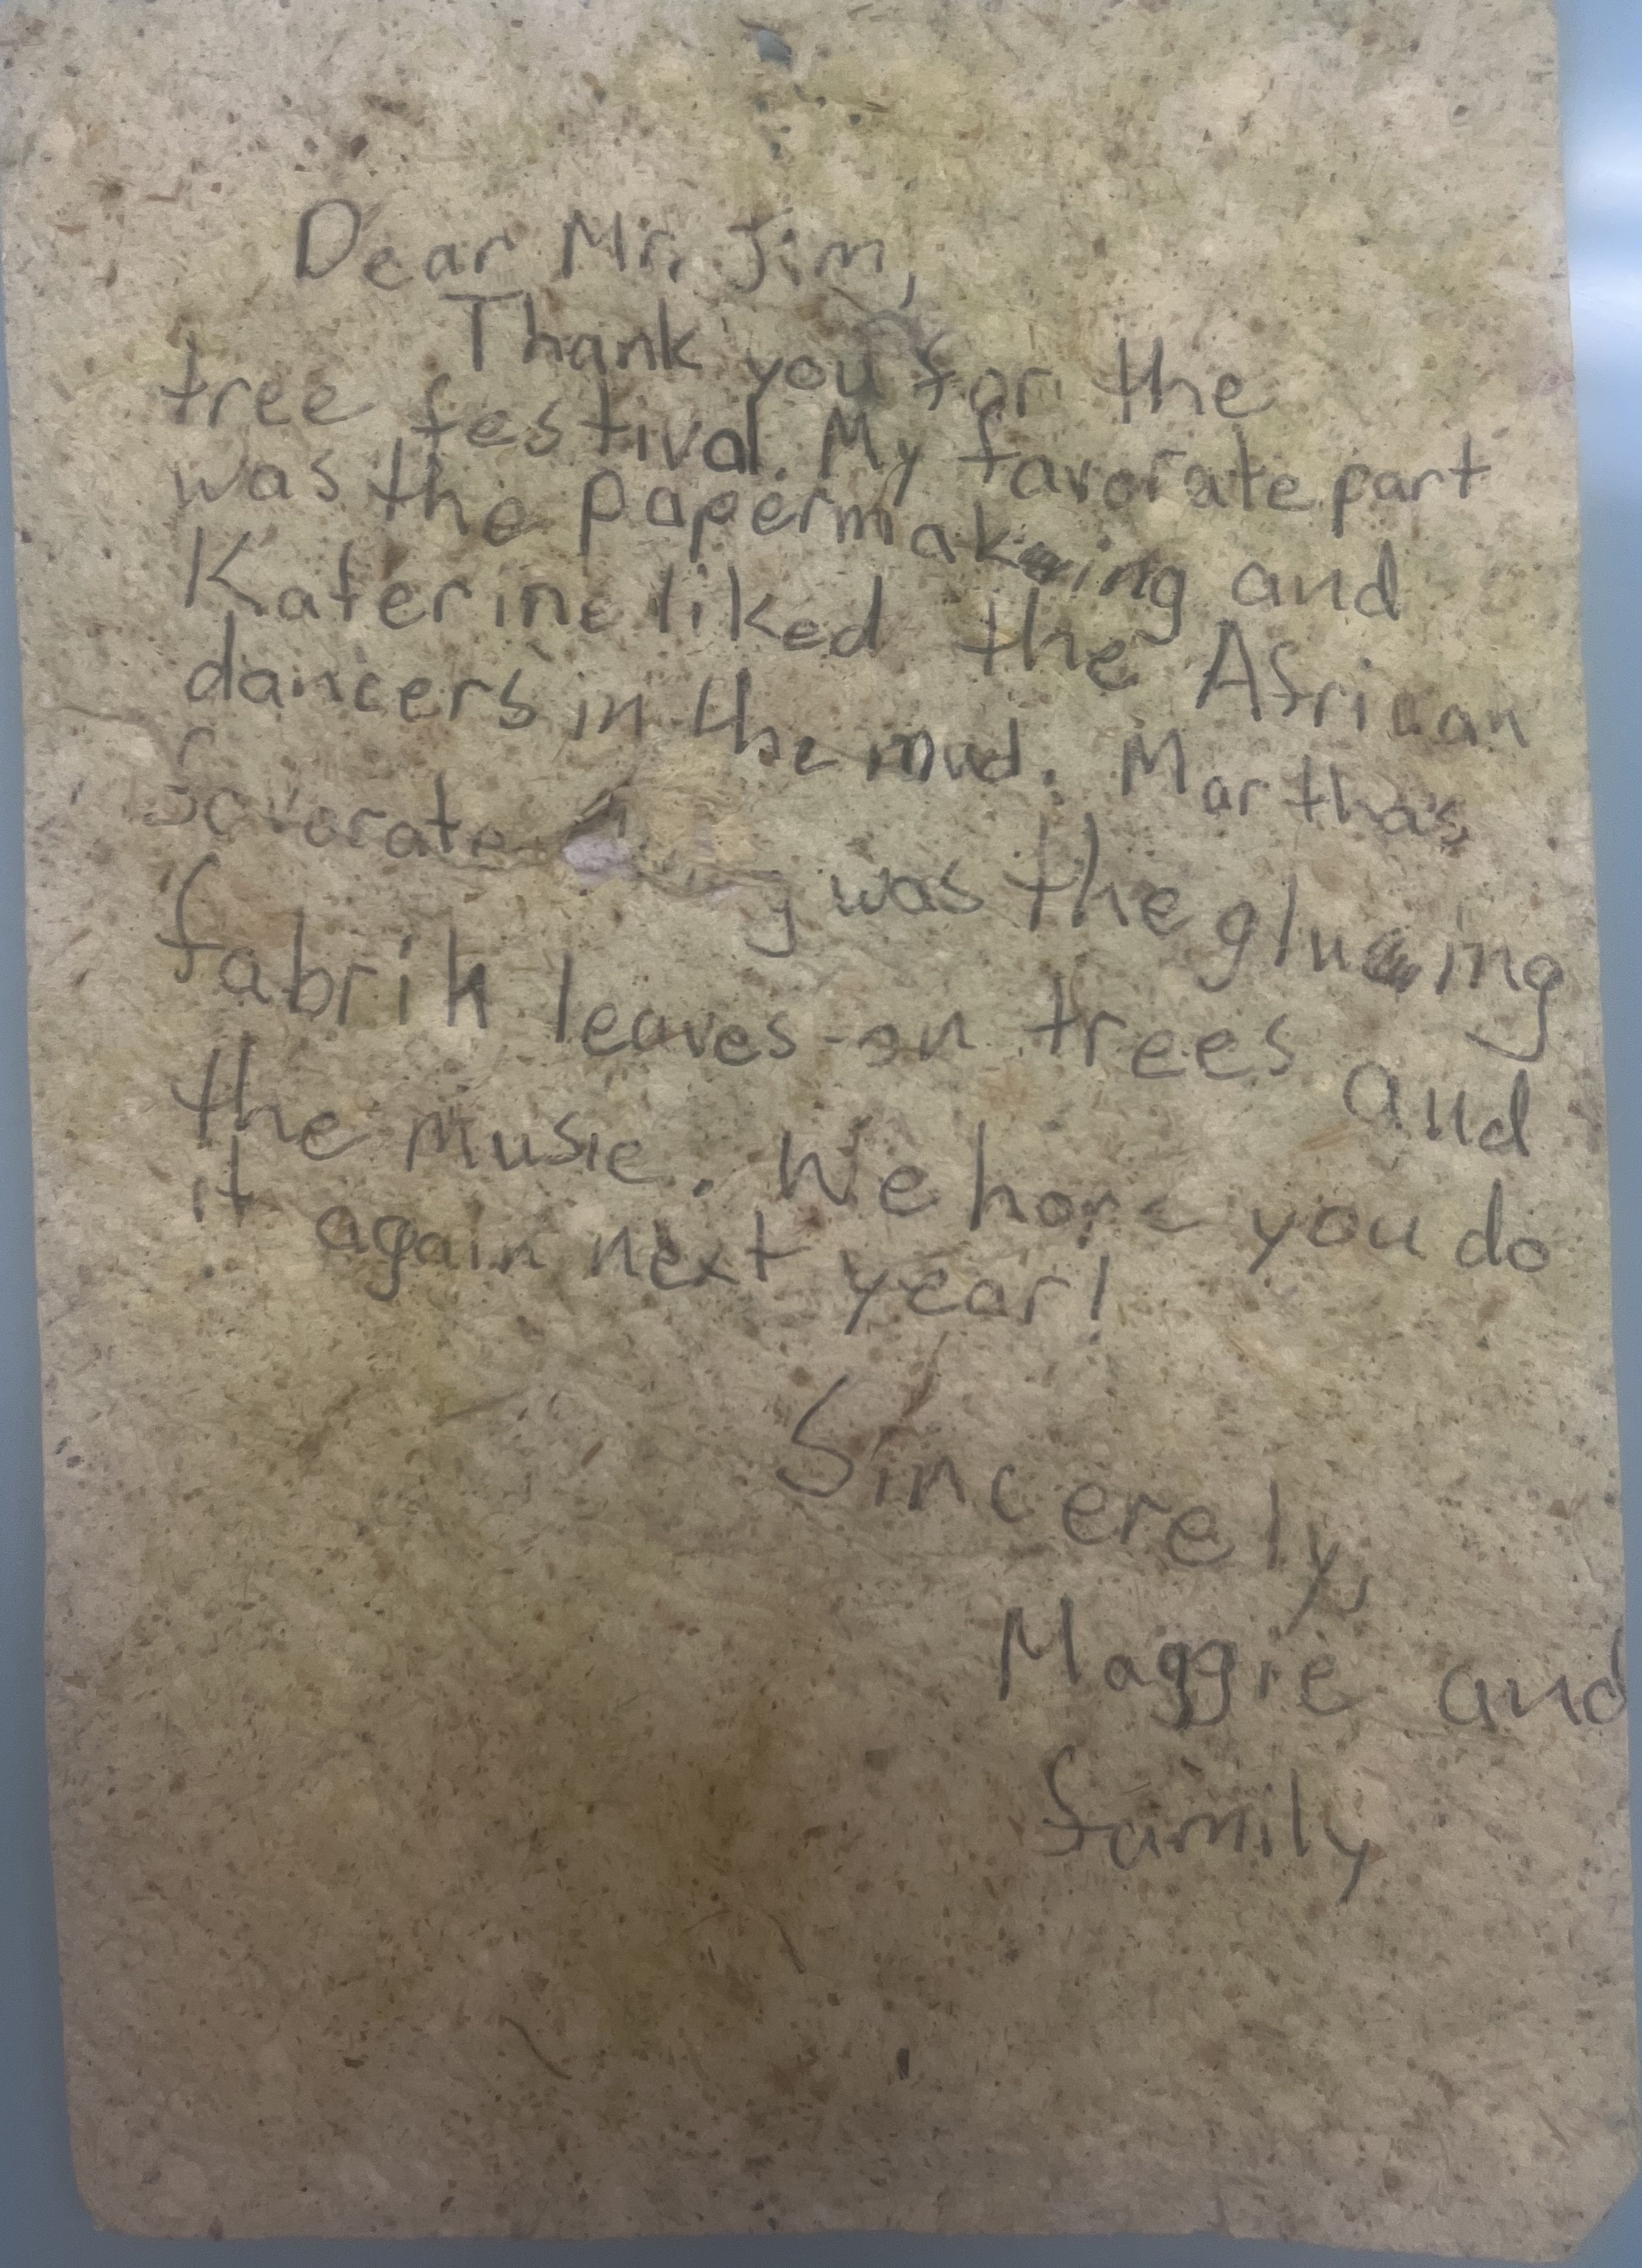 Dear Mr. Jim,
Thank you for the
tree festival. My favorate part
was the papermaking and
Katerine liked the African
dancers in the mud. Martha's
favorate was the gluing
fabrik leaves on trees and
the music. We hope you do
it again next year!
Sincerely,
Maggie and
family